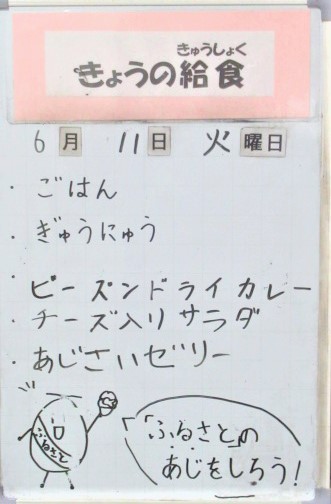 きゅうしょく
きょうの給食
6月 11日 火曜日
・ごはん
・ぎゅうにゅう
・ビーズンドライカレー
・チーズ入りサラダ
・あじさいゼリー
ふるさと
「ふるさと」の
あじをしろう!